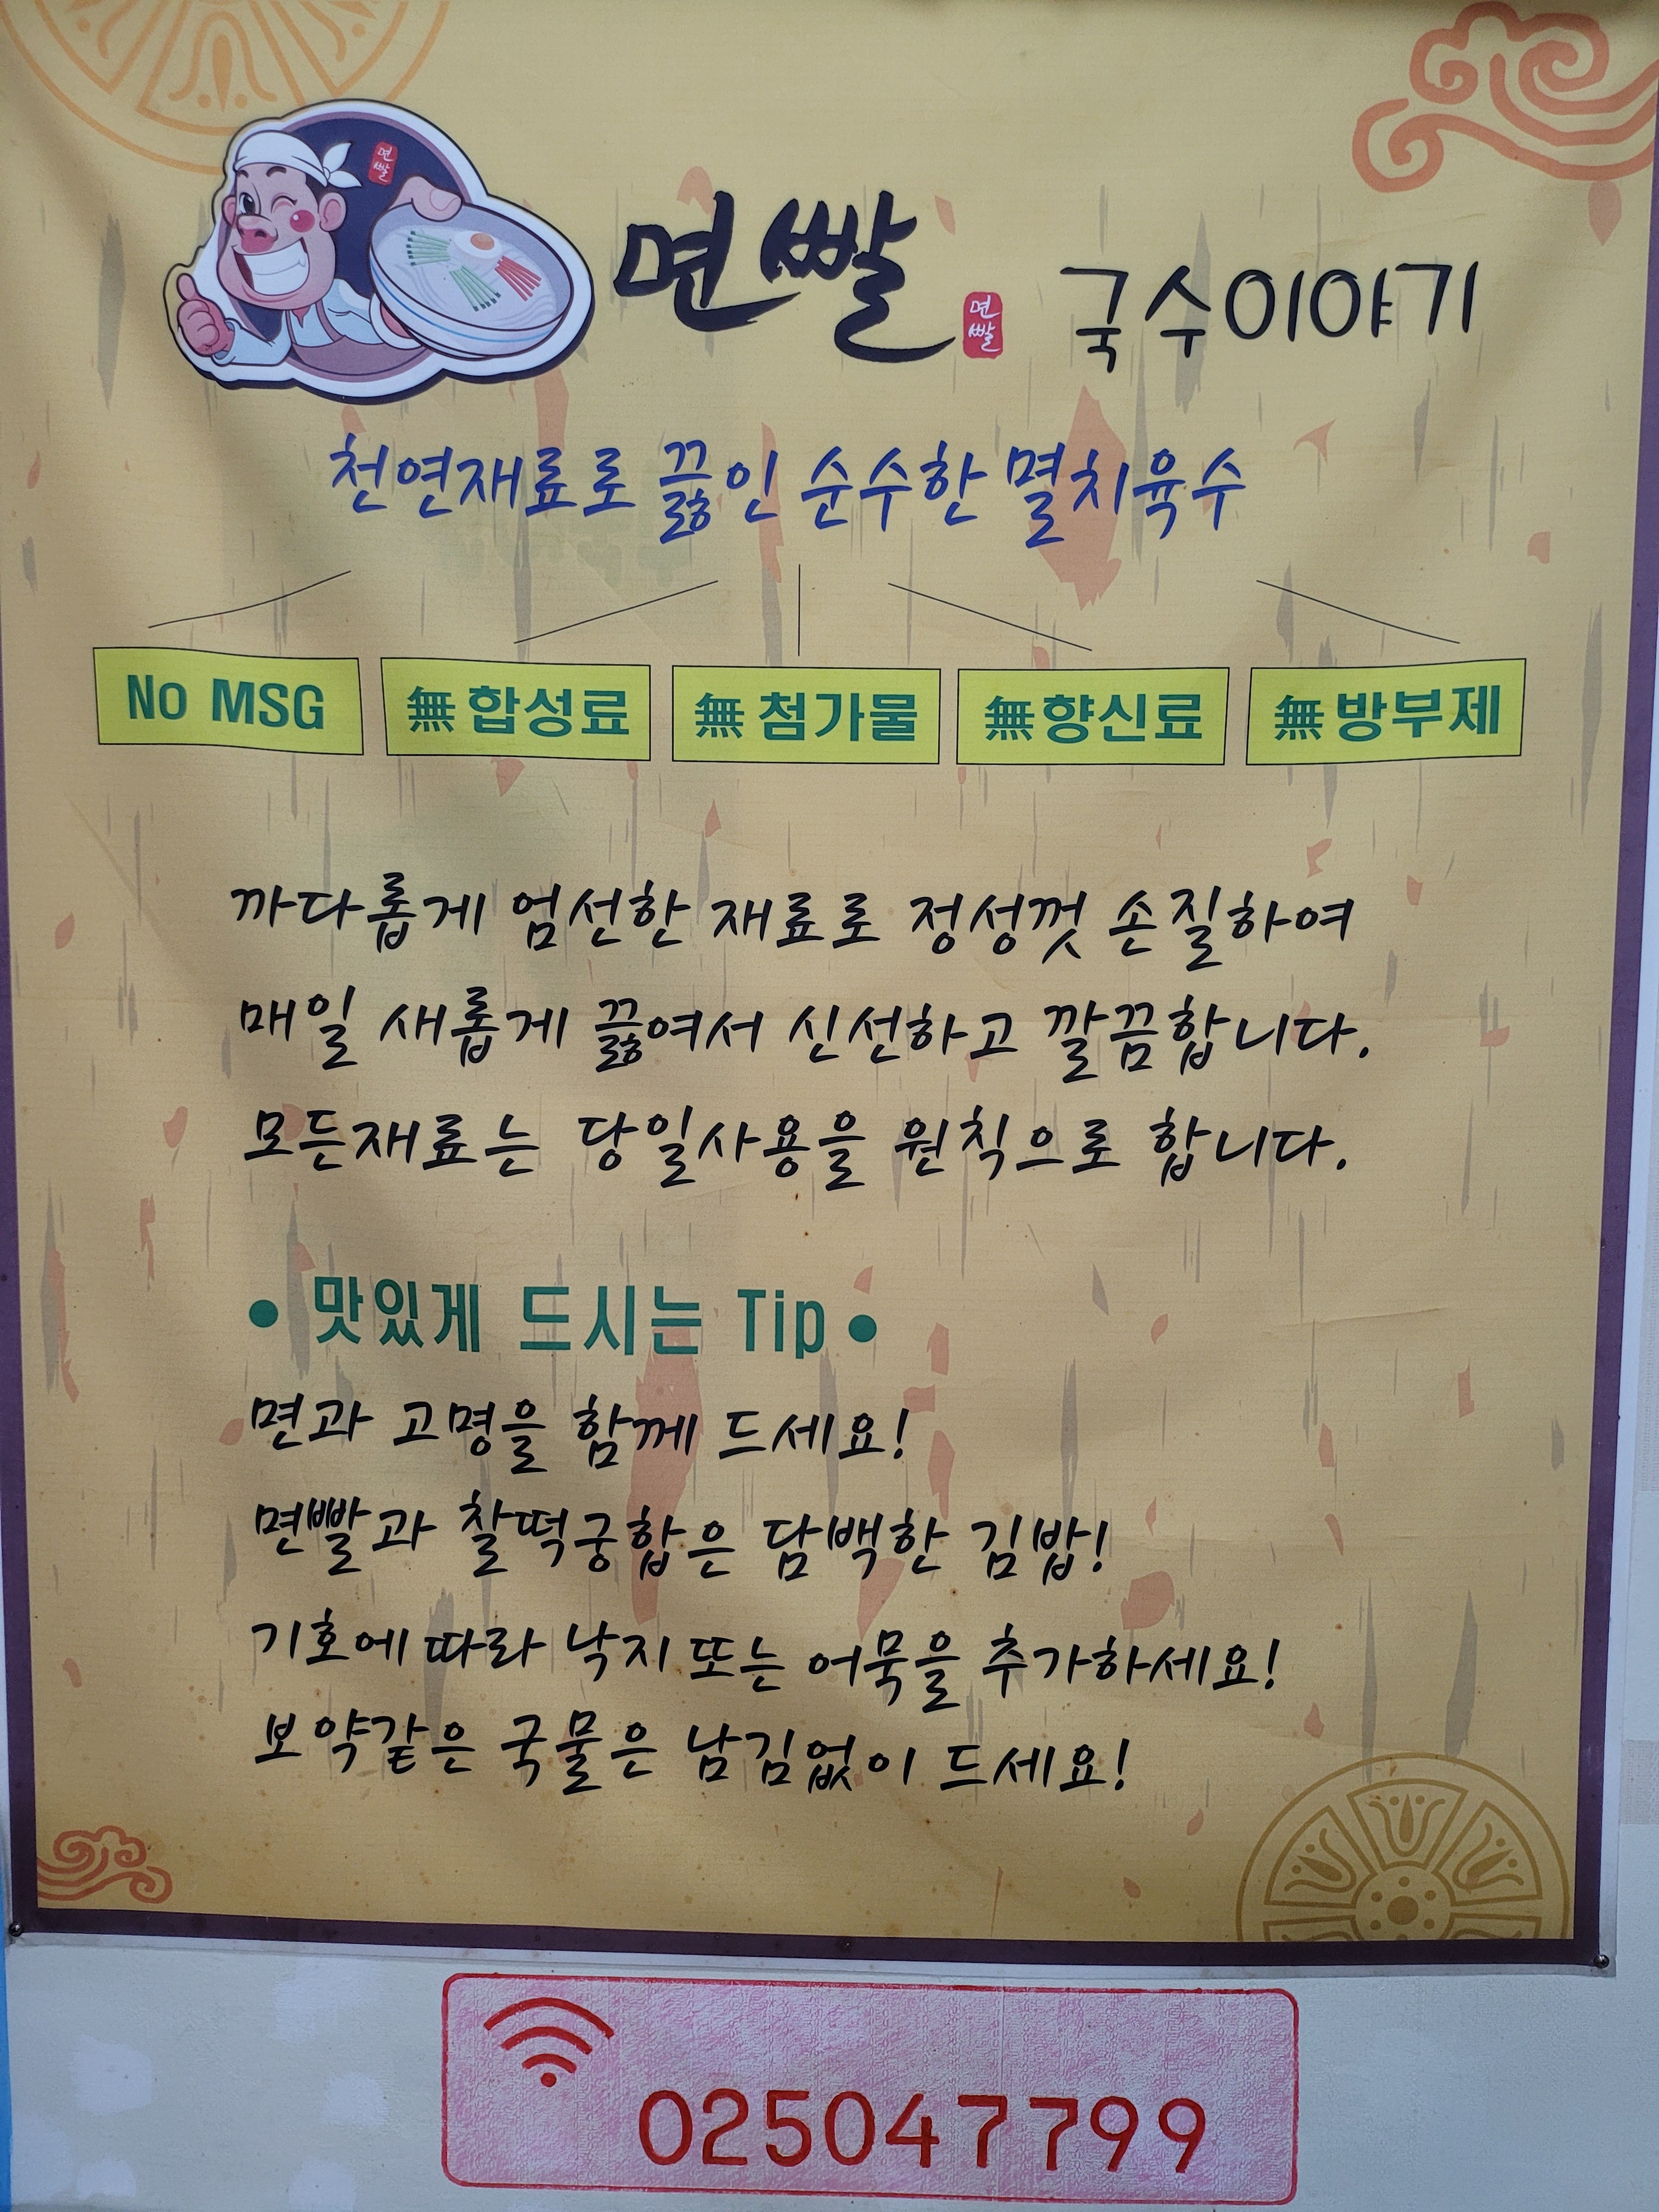 면빨
면빨 면빨 국수이야기
천연재료로 끓인 순수한 멸치육수
No MSG 無 합성료 無 첨가물 無 향신료 無 방부제
까다롭게 엄선한 재료로 정성껏 손질하여
매일 새롭게 끓여서 신선하고 깔끔합니다.
모든재료는 당일사용을 원칙으로 합니다.
• 맛있게 드시는 Tip •
면과 고명을 함께 드세요!
면빨과 찰떡궁합은 담백한 김밥!
기호에 따라 낙지 또는 어묵을 추가하세요!
보약같은 국물은 남김없이 드세요!
025047799